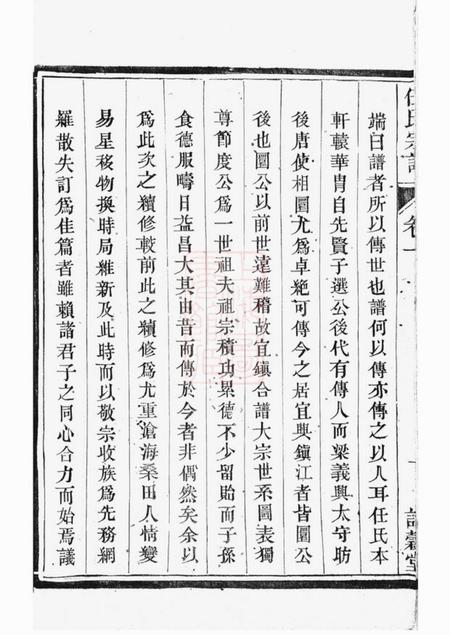 端曰譜者所以傳世也譜何以傳亦傳之以人耳任氏本
軒轅華冑自先賢子選公後代有傳人而梁義興太守昉
後唐使相圜尤為卓絶可傳今之居宜興鎮江者皆圜公
後也圜公以前世遠難稽故宜鎮合譜大宗世系圖表獨
尊節度公為一世祖夫祖宗積功累德不少留貽而子孫
食德服疇日益昌大其由昔而傳於今者非偶然矣余以
為此次之續修較前此之續修為尤重滄海桑田人情變
易星移物換時局維新及此時而以敬宗收族為先務網
羅散失訂為佳篇者雖賴諸君子之同心合力而始焉議
任氏宗譜
卷一